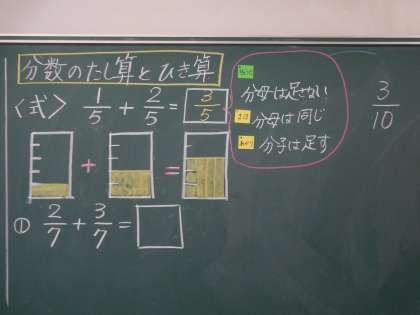 分数のたし算とひき算
〈式〉 1/5 + 2/5 = 3/5
分母は足さない
分母は同じ
分子は足す
3/10
+ =
① 2/7 + 3/7 =